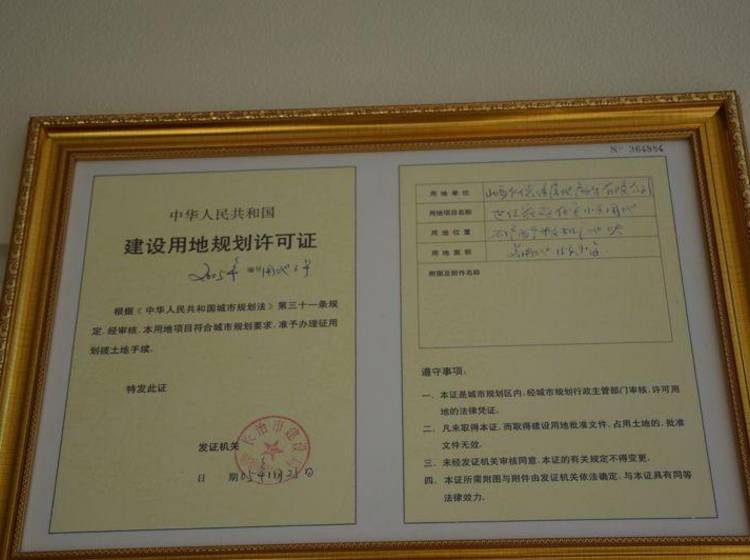 中华人民共和国
建设用地规划许可证
2005年 编号
根据《中华人民共和国城市规划法》第三十一条规
定,经审核,本用地项目符合城市规划要求,准予办理征用
划拨土地手续。
特发此证
发证机关
日 期
长治市建设
Nº 364884
用地单位
用地项目名称
用地位置
用地面积
附图及附件名称
遵守事项:
一、本证是城市规划区内,经城市规划行政主管部门审核,许可用
地的法律凭证。
二、凡未取得本证,而取得建设用地批准文件、占用土地的,批准
文件无效。
三、未经发证机关审核同意,本证的有关规定不得变更。
四、本证所需附图与附件由发证机关依法确定,与本证具有同等
法律效力。